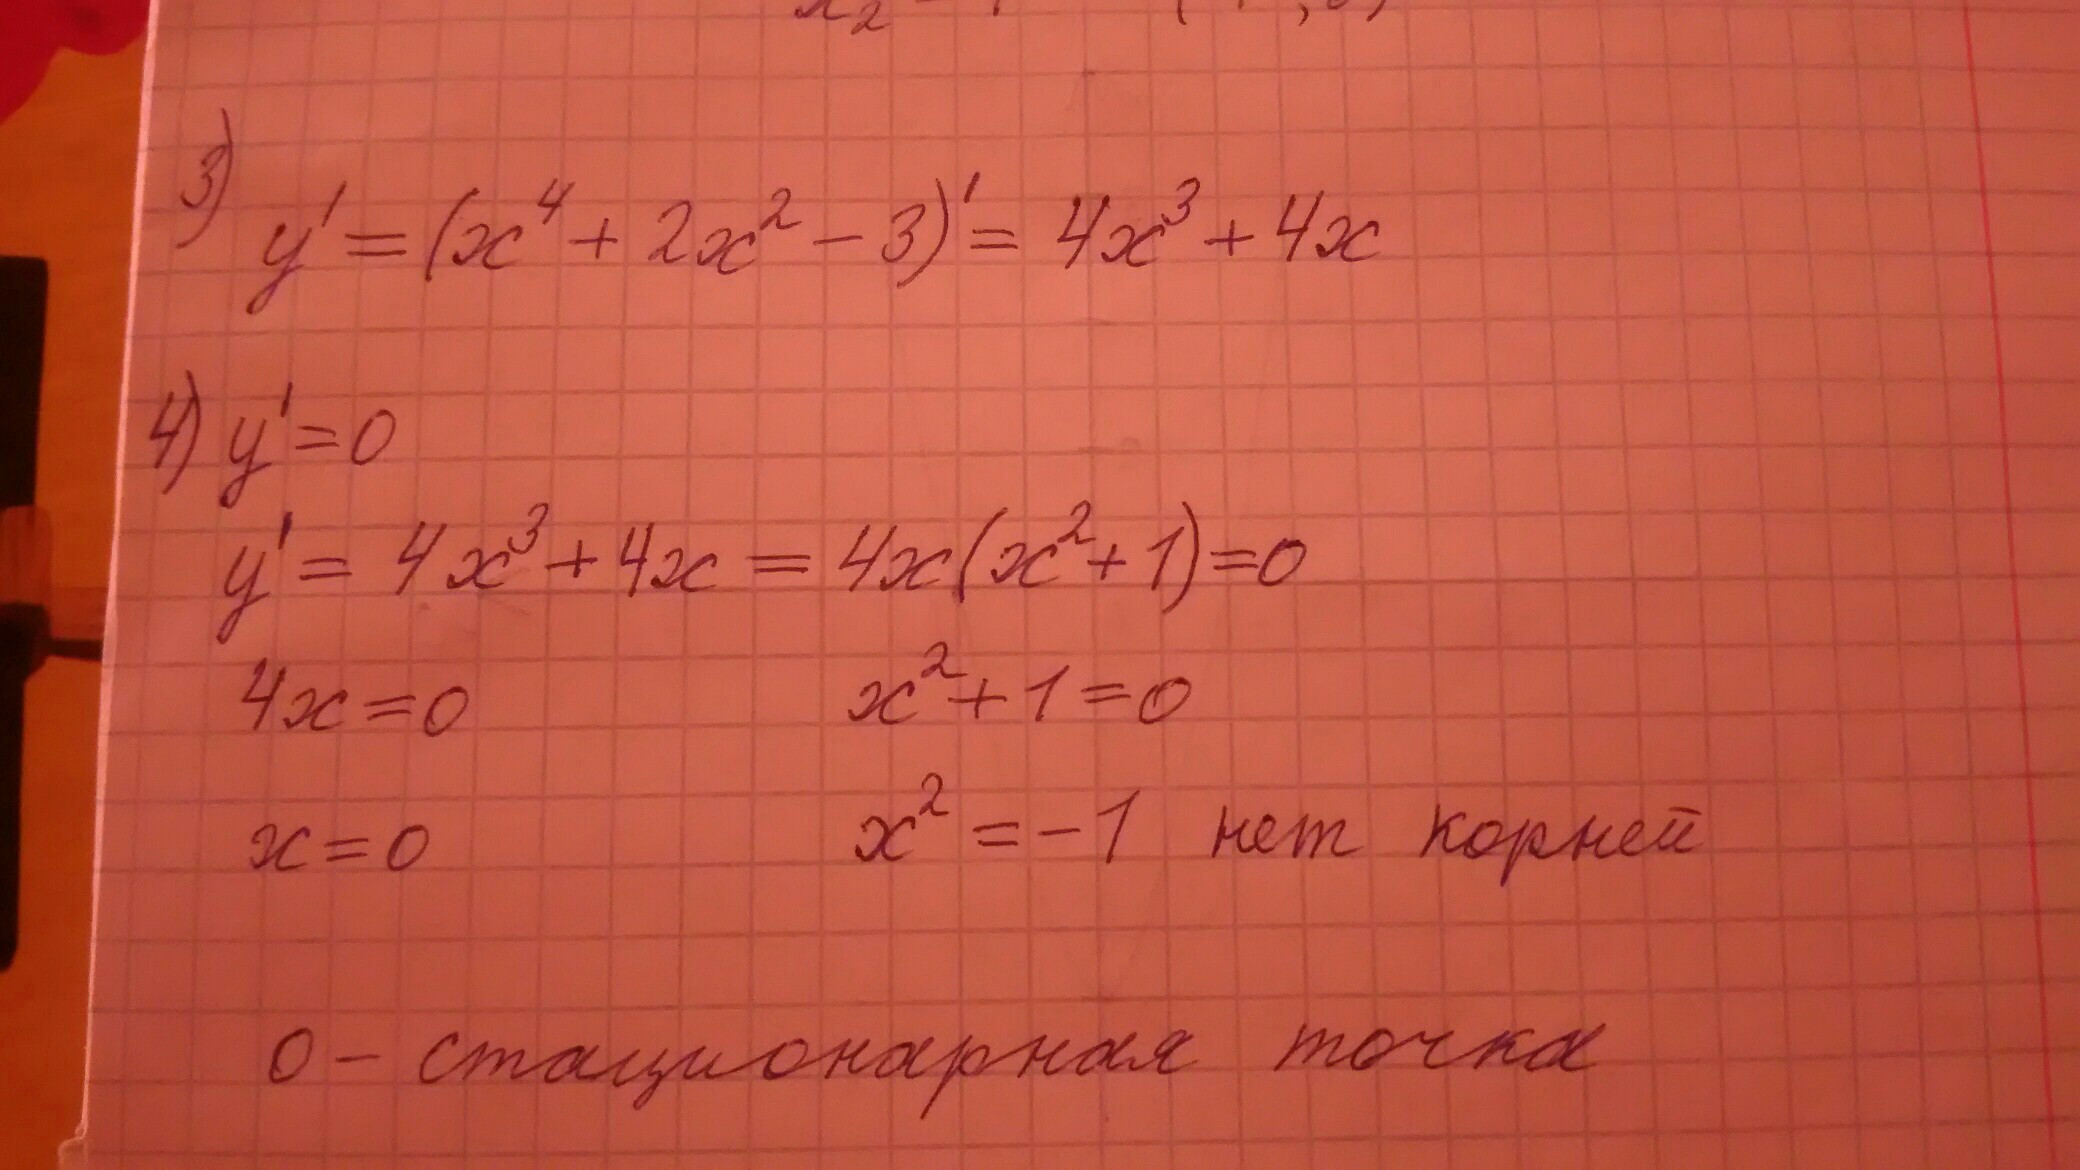 3) y' = (x⁴ + 2x² - 3)' = 4x³ + 4x
4) y' = 0
y' = 4x³ + 4x = 4x(x² + 1) = 0
4x = 0 x² + 1 = 0
x = 0 x² = -1 нет корней
0 - стационарная точка